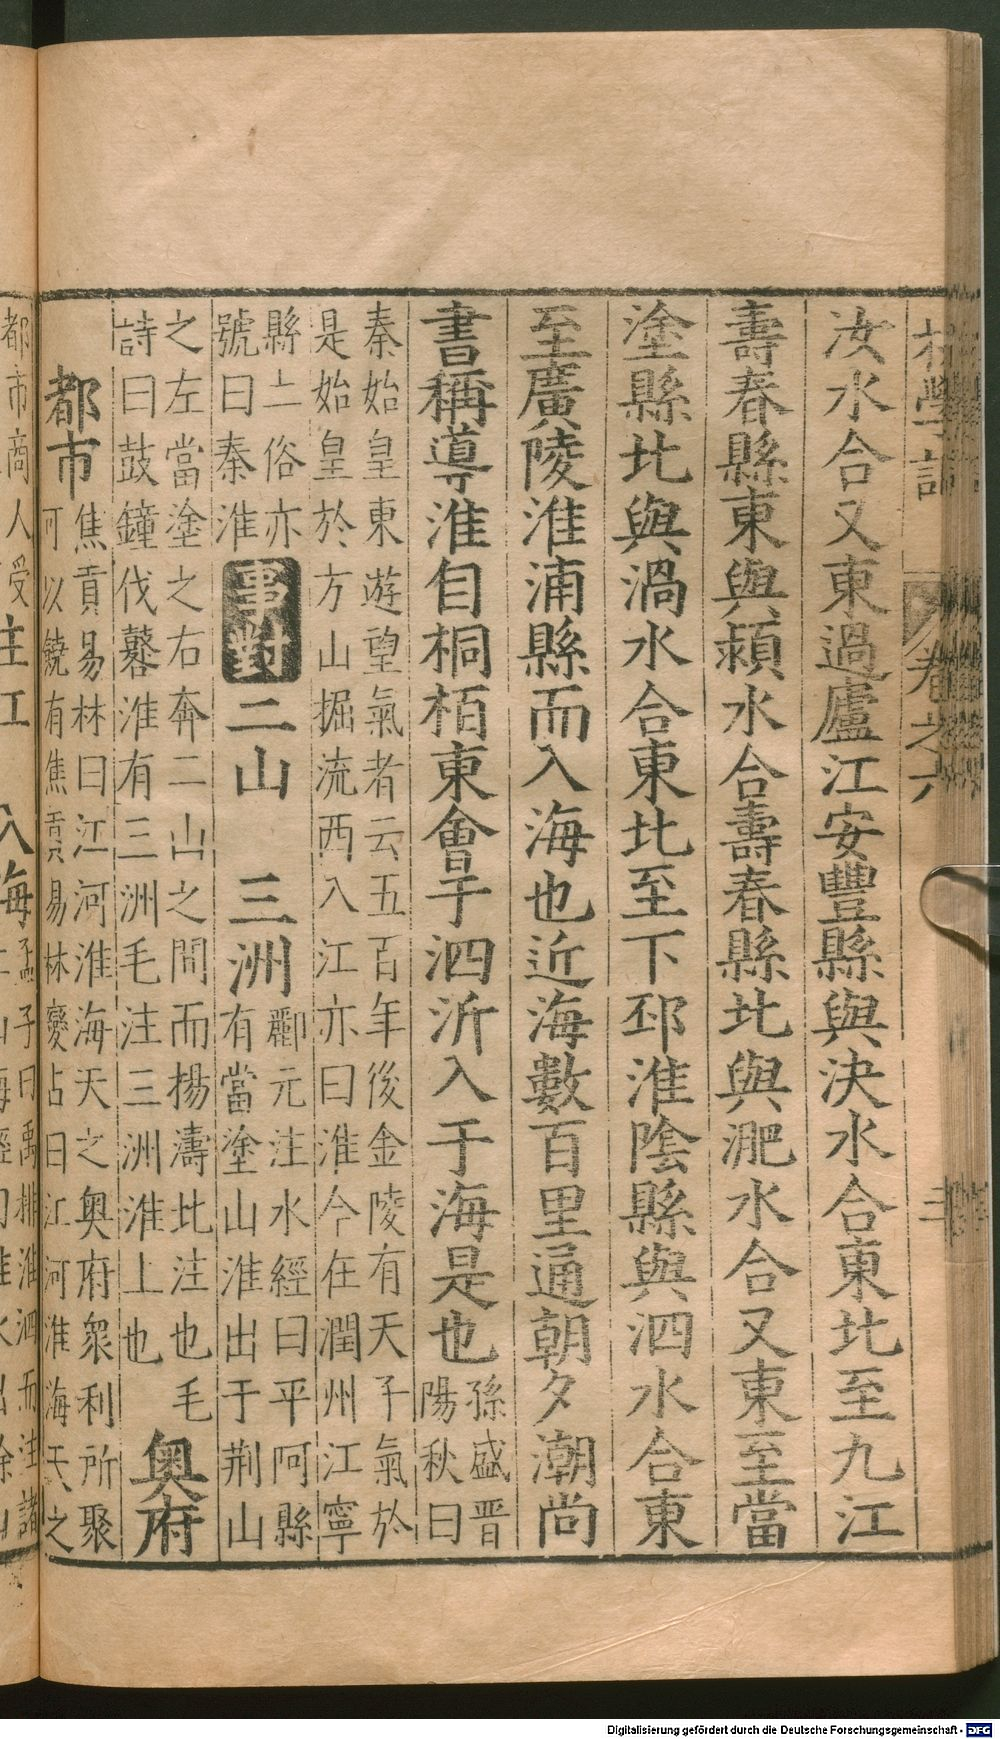 汝水合又東過廬江安豐縣與決水合東北至九江
壽春縣東與潁水合壽春縣北與淝水合又東至當
塗縣北與渦水合東北至下邳淮陰縣與泗水合東
至廣陵淮浦縣而入海也近海數百里通朝夕潮尚
書稱導淮自桐栢東會于泗沂入于海是也
孫盛晉
陽秋曰
秦始皇東遊望氣者云五百年後金陵有天子氣於
是始皇於方山掘流西入江亦曰淮今在潤州江寧
縣土俗亦
號曰秦淮
事對
二山 三洲
酈元注水經曰平阿縣
有當塗山淮出于荆山
之左當塗之右奔二山之間而揚濤北注也毛
詩曰鼓鐘伐鼛淮有三洲毛注三洲淮上也
奥府
都市
焦貢易林曰江河淮海天之奥府衆利所聚
可以饒有焦貢易林變占曰江河淮海天之
都市商人受
注江 入海
孟子曰禹排淮泗而注諸
卷之六
Digitalisierung gefördert durch die Deutsche Forschungsgemeinschaft - DFG